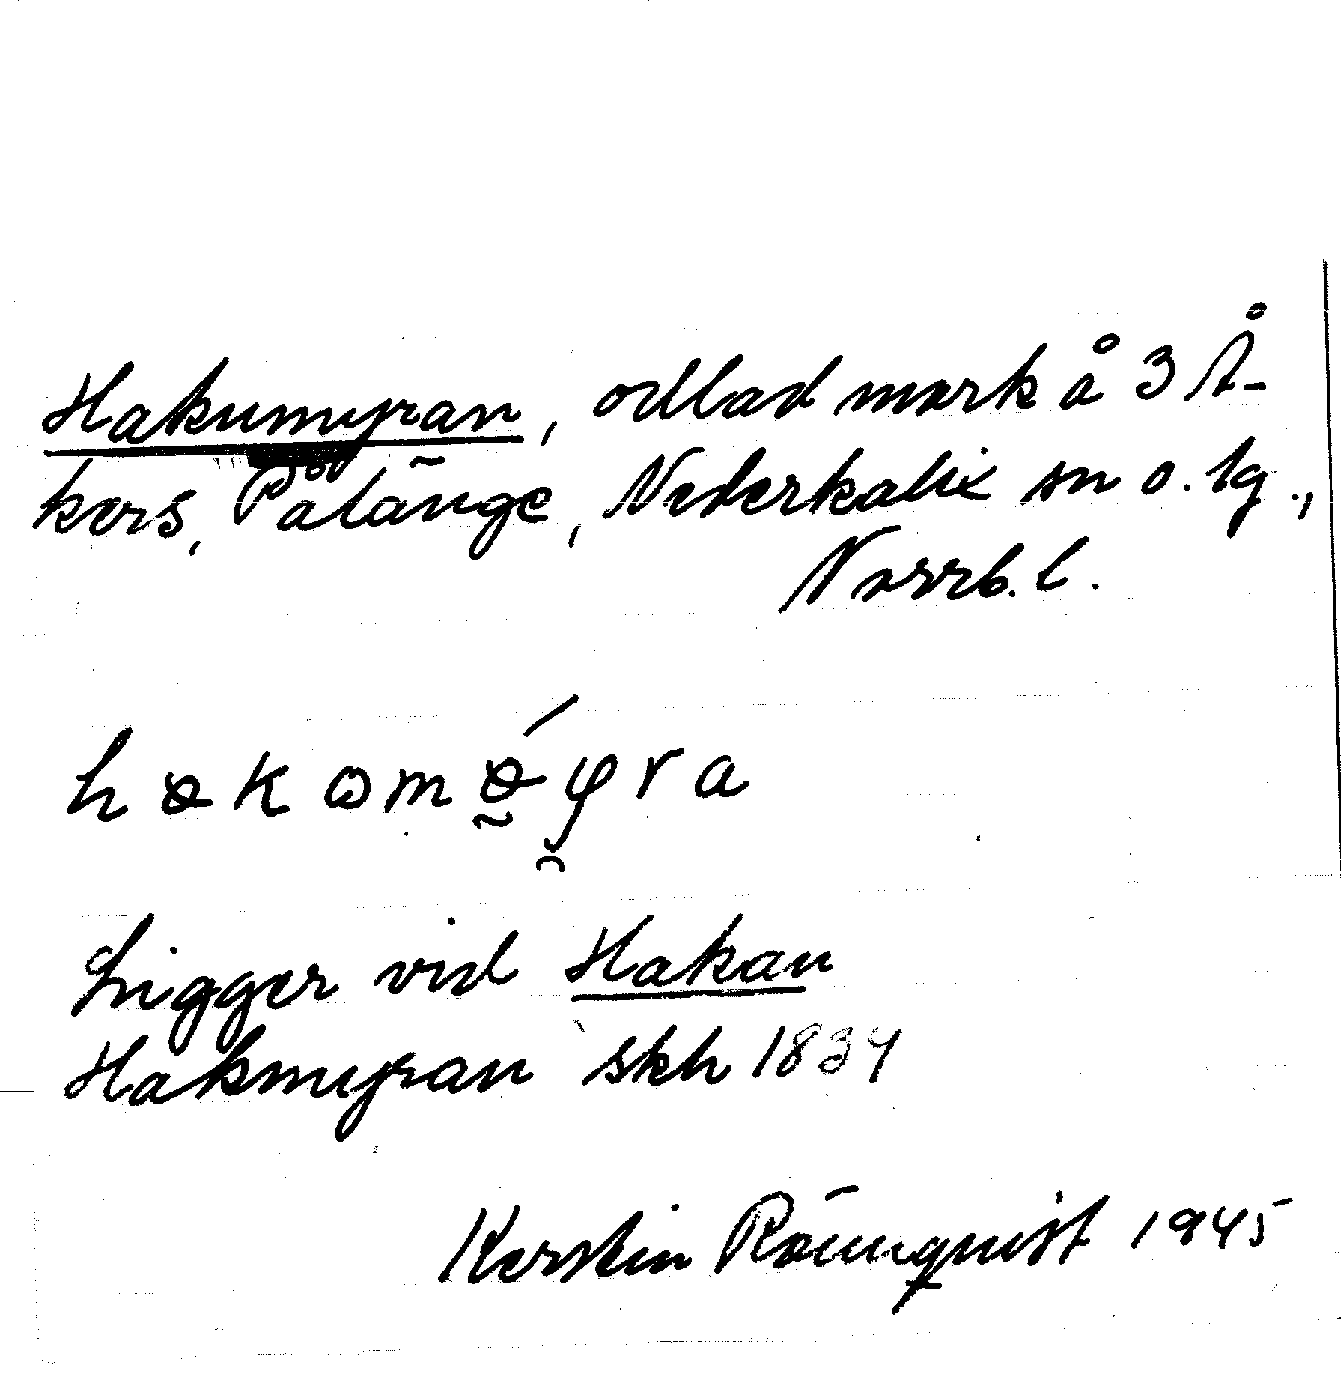 Hakumyran, odlad mark å 3 Å-
kers, Pålänge, Nederkalix sn o. tg.,
Norrb. l.
Ligger vid Hakan
Hakmyran skh 1834
Kerstin Rönnqvist 1945